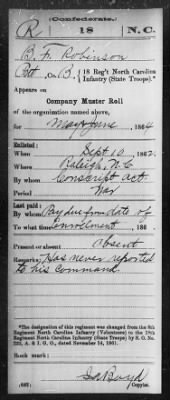 (Confederate.)
R 18 N.C.
B. F. Robinson
Pvt, Co. B, 18 Reg't North Carolina
Infantry (State Troops).*
Appears on
Company Muster Roll
of the organization named above,
for May & June, 1864
Enlisted:
When Sept 10, 1862.
Where Raleigh, N.C.
By whom Conscript act
Period War
Last paid:
By whom Pay due from date of
To what time enrollment, 186 .
Present or absent Absent
Remarks: Has never reported
to his command
*The designation of this regiment was changed from the 8th
Regiment North Carolina Infantry (Volunteers) to the 18th
Regiment North Carolina Infantry (State Troops) by S. O. No.
222, A. & I. G. O., dated November 14, 1861.
Book mark:
(642) Boyd
Copyist.